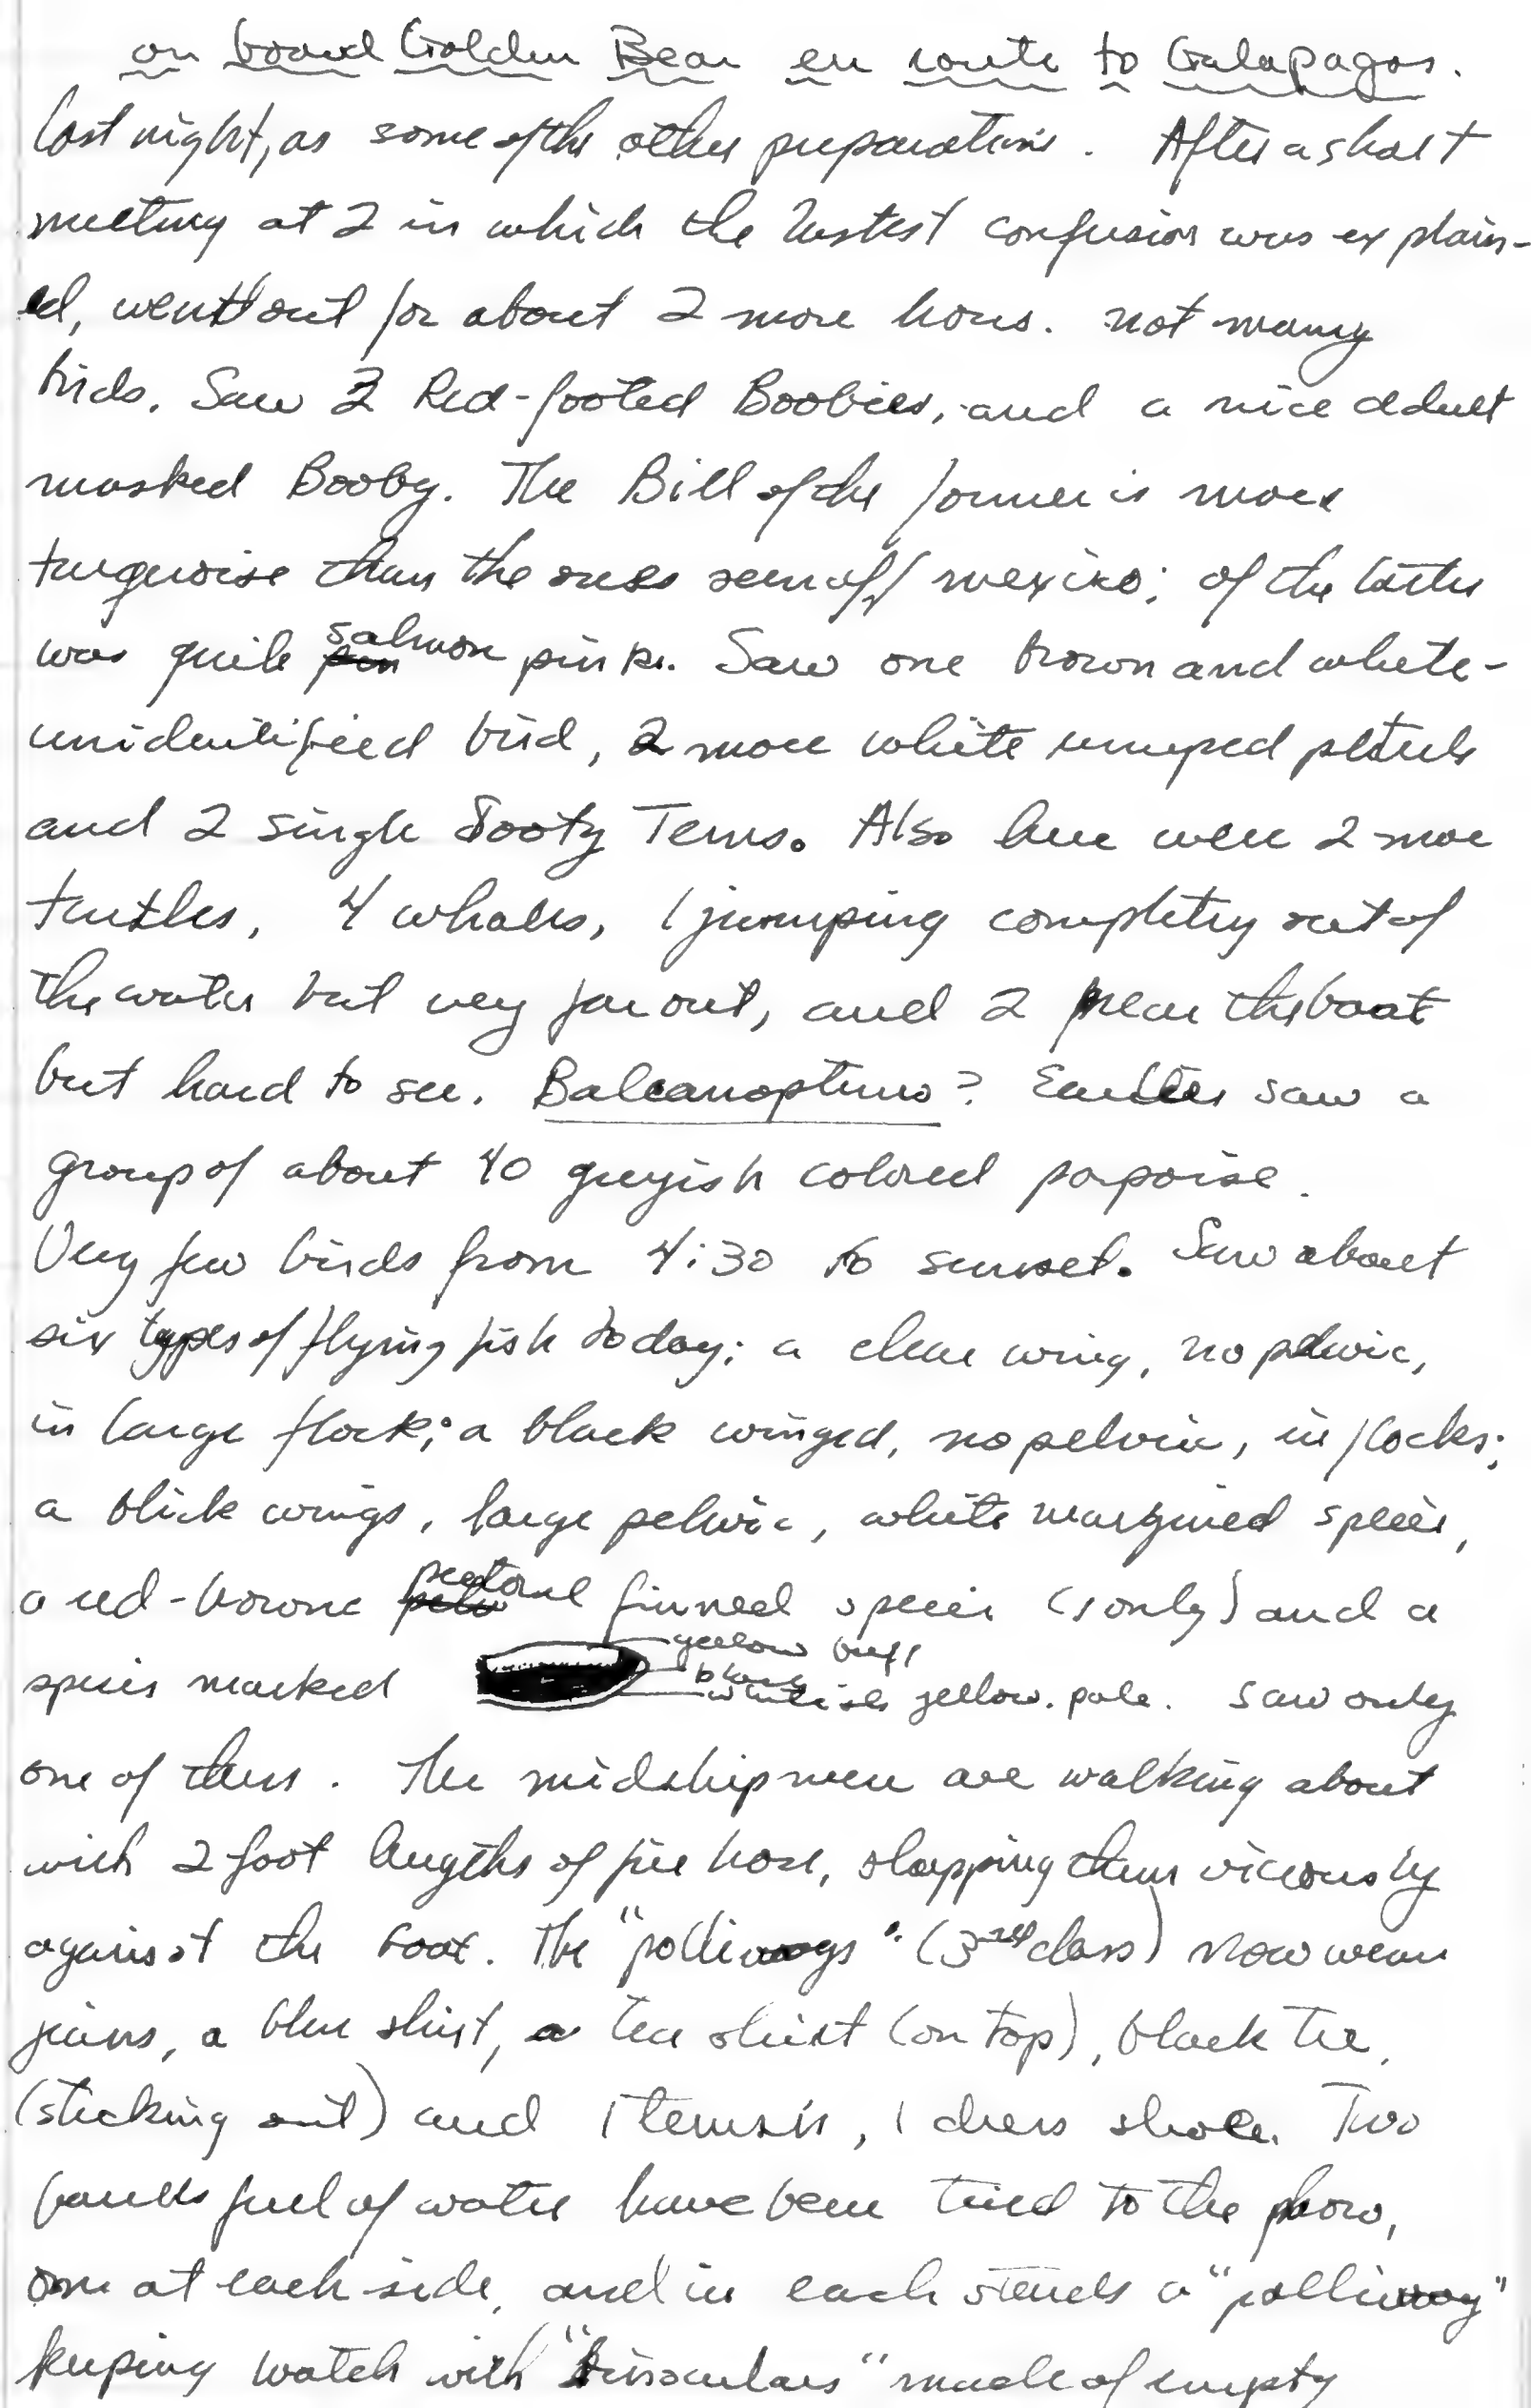 on board Golden Bear en route to Galapagos.
last night, as some of the other preparations. After a short
meeting at 2 in which the latest confusion was explain-
ed, went out for about 2 more hours. not many
birds. Saw 2 Red-footed Boobies, and a nice adult
masked Booby. The Bill of the former is more
turquoise than the ones seen off mexico; of the latter
was quite salmon pink. Saw one brown and white-
unidentified bird, 2 more white rumped petrels
and 2 single Sooty Terns. Also here were 2 more
turtles, 4 whales, 1 jumping completly out of
the water but very far out, and 2 near the boat
but hard to see. Baleanopterus? Earlier saw a
group of about 40 greyish colored porpoise.
Very few birds from 4:30 to sunset. Saw about
six types of flying fish today: a clear wing, no pelvic,
in large flock; a black winged, no pelvic, in flocks;
a black wings, large pelvic, white margined species,
a red-brown pectoral finned species (1 only) and a
species marked yellow buff black whitish yellow. pale. saw only
one of these. The midshipmen are walking about
with 2 foot lengths of fire hose, slapping them viciously
against the boat. The "polliwogs" (3rd class) now wear
jeans, a blue shirt, a tee shirt (on top), black tie,
(sticking out) and 1 tennis, 1 dress shoe. Two
barrels full of water have been tied to the prow,
one at each side, and in each stands a "polliwog"
keeping watch with "binoculars" made of empty